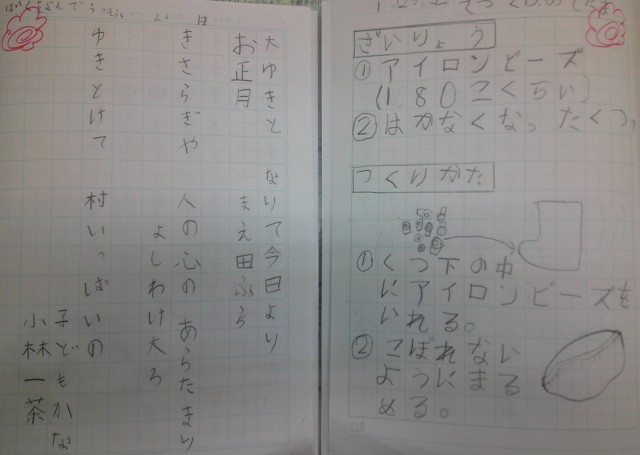 大ゆきと なりて今日より
お正月 まえ田ふら
きさらぎや 人の心の あらたまり
よしわけ大ろ
ゆきとけて 村いっぱいの
子どもかな
小林一茶
ざいりょう
①アイロンビーズ
(180こくらい)
②はかなくなったくつ
つくりかた
①くつ下の中
にアイロンビーズを
いれる。
②こぼれない
ようにまる
める。